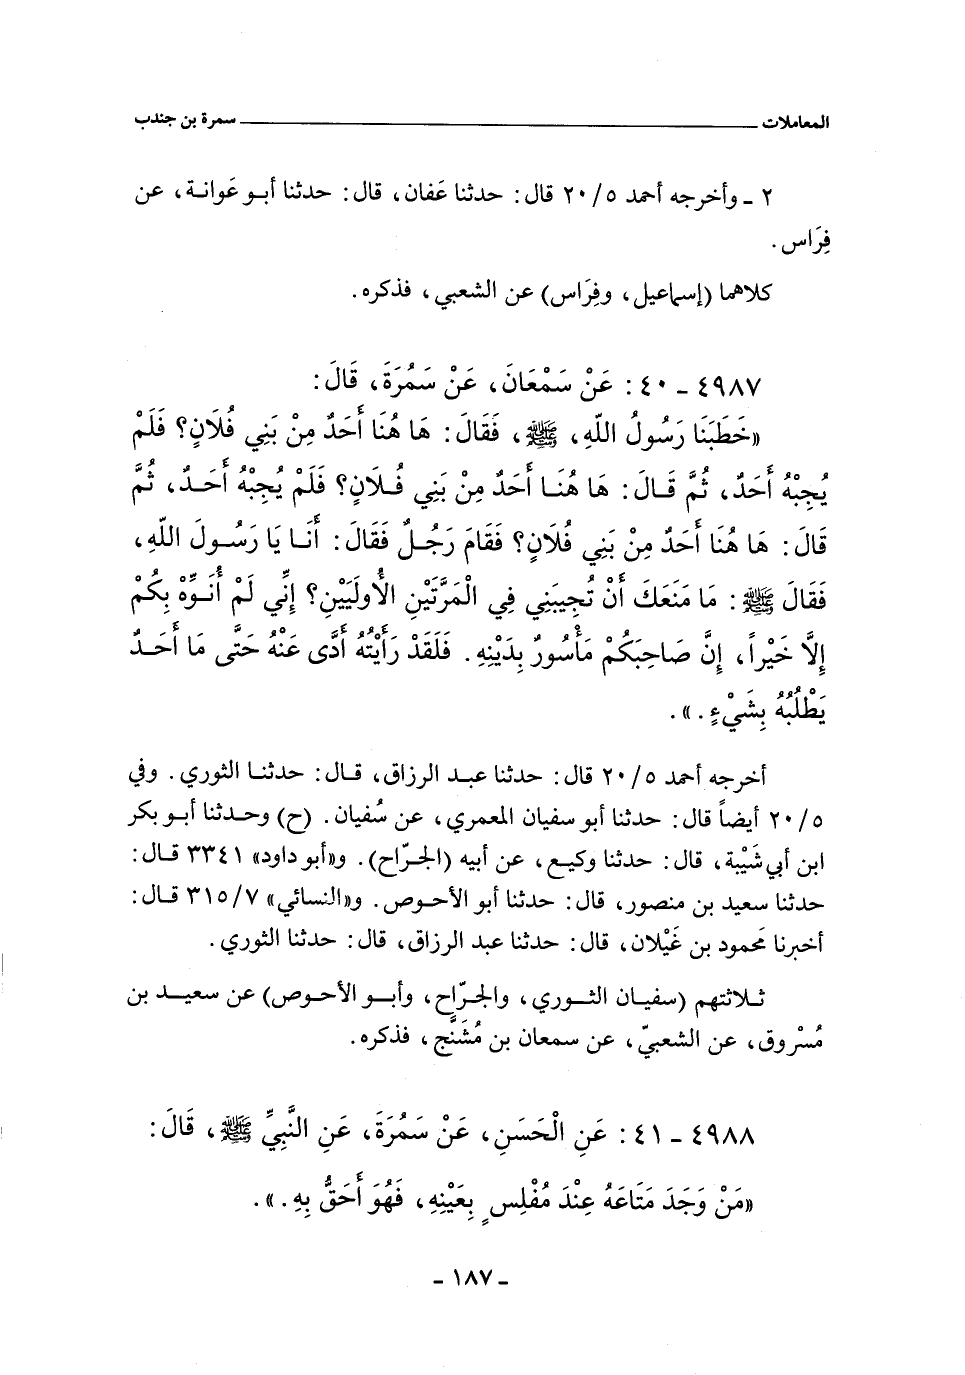 المعاملات ــــــــــــــــــــ سمرة بن جندب
٢ ـ وأخرجه أحمد ٥/ ٢٠ قال: حدثنا عَفان، قال: حدثنا أبو عَوانة، عن
فِرَاس.
كلاهما (إسماعيل، وفِرَاس) عن الشعبي، فذكره.
٤٩٨٧ ـ ٤٠: عَنْ سَمْعَانَ، عَنْ سَمُرَةَ، قَالَ:
«خَطَبَنَا رَسُولُ اللّهِ، ﷺ، فَقَالَ: هَا هُنَا أَحَدٌ مِنْ بَنِي فُلَانٍ؟ فَلَمْ
يُجِبْهُ أَحَدٌ، ثُمَّ قَالَ: هَا هُنَا أَحَدٌ مِنْ بَنِي فُلَانٍ؟ فَلَمْ يُجِبْهُ أَحَدٌ، ثُمَّ
قَالَ: هَا هُنَا أَحَدٌ مِنْ بَنِي فُلَانٍ؟ فَقَامَ رَجُلٌ فَقَالَ: أَنَا يَا رَسُولَ اللّهِ،
فَقَالَ ﷺ: مَا مَنَعَكَ أَنْ تُجِيبَنِي فِي الْمَرَّتَيْنِ الْأُولَيَيْنِ؟ إِنِّي لَمْ أُنَوِّهْ بِكُمْ
إِلَّا خَيْراً، إِنَّ صَاحِبَكُمْ مَأْسُورٌ بِدَيْنِهِ. فَلَقَدْ رَأَيْتُهُ أَدَّى عَنْهُ حَتَّى مَا أَحَدٌ
يَطْلُبُهُ بِشَيْءٍ.».
أخرجه أحمد ٥/ ٢٠ قال: حدثنا عبد الرزاق، قال: حدثنا الثوري. وفي
٥/ ٢٠ أيضاً قال: حدثنا أبو سفيان المعمري، عن سُفيان. (ح) وحدثنا أبو بكر
ابن أبي شَيْبة، قال: حدثنا وكيع، عن أبيه (الجرّاح). و«أبو داود» ٣٣٤١ قال:
حدثنا سعيد بن منصور، قال: حدثنا أبو الأحوص. و«النسائي» ٧/ ٣١٥ قال:
أخبرنا مَحمود بن غَيْلان، قال: حدثنا عبد الرزاق، قال: حدثنا الثوري.
ثلاثتهم (سفيان الثوري، والجرّاح، وأبو الأحوص) عن سعيد بن
مُسْروق، عن الشعبيّ، عن سمعان بن مُشَنَّج، فذكره.
٤٩٨٨ ـ ٤١: عَنِ الْحَسَنِ، عَنْ سَمُرَةَ، عَنِ النَّبِيِّ ﷺ، قَالَ:
«مَنْ وَجَدَ مَتَاعَهُ عِنْدَ مُفْلِسٍ بِعَيْنِهِ، فَهُوَ أَحَقُّ بِهِ.».
ـ ١٨٧ ـ